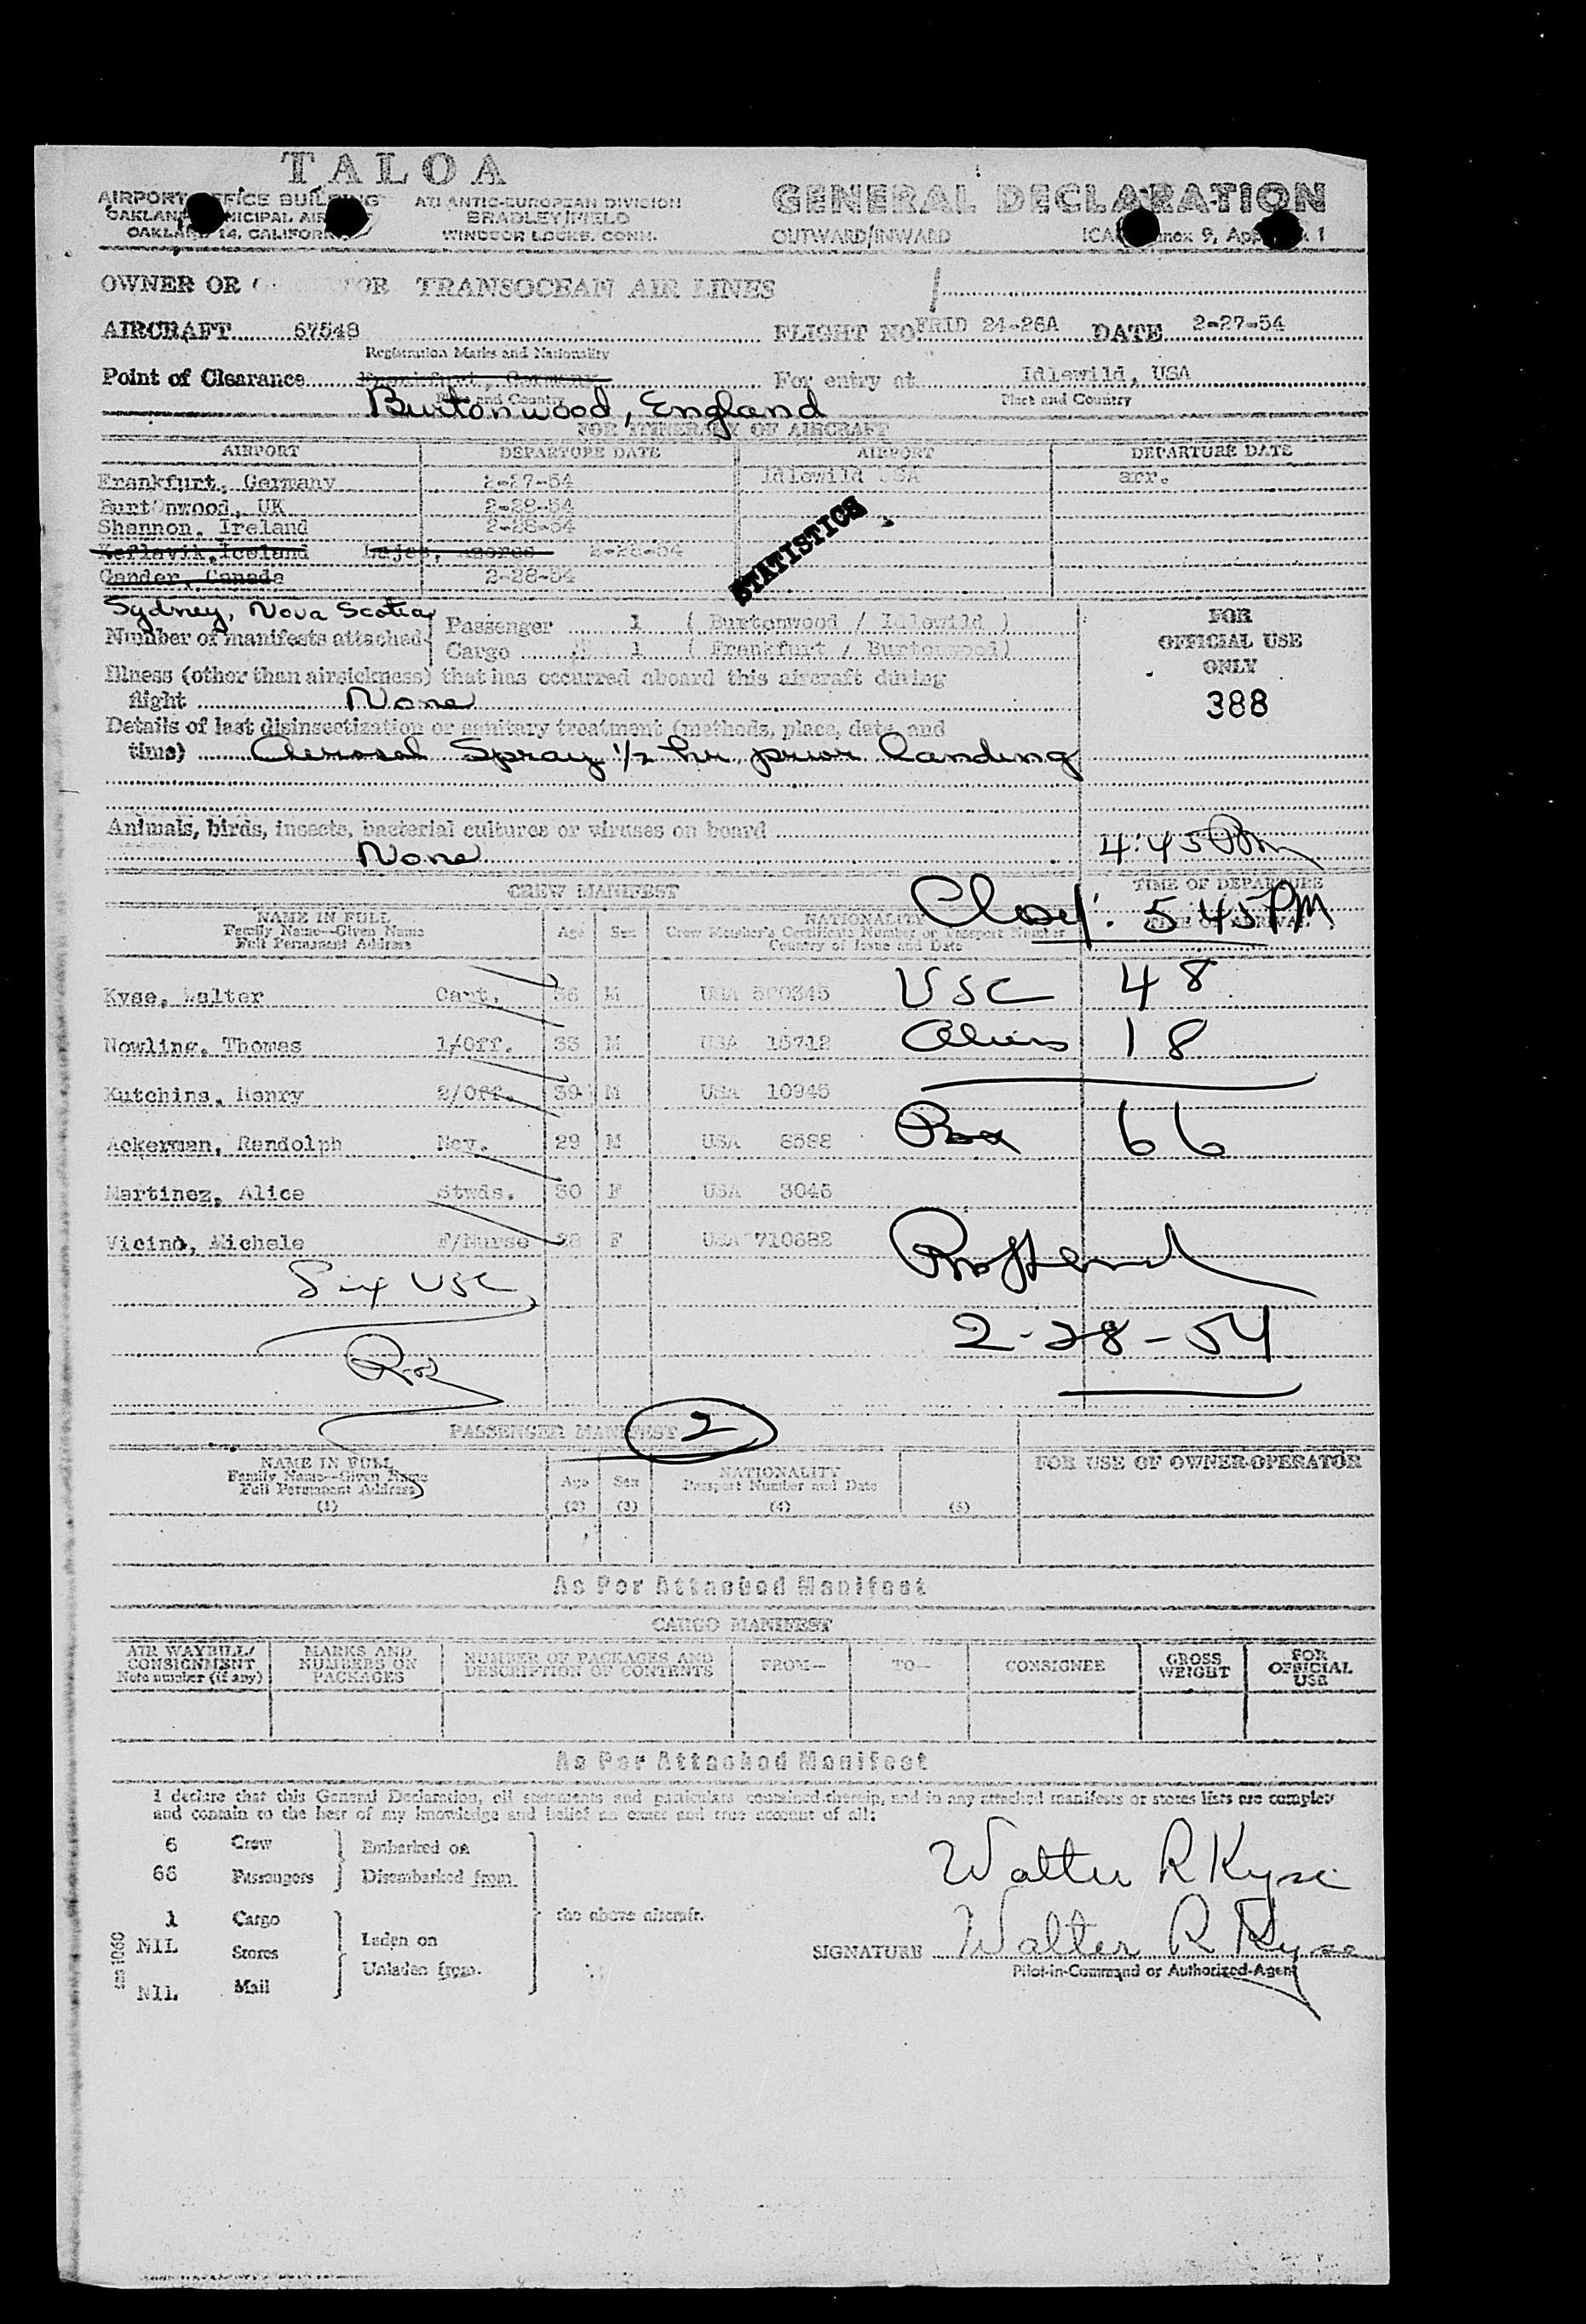 TALOA
AIRPORT OFFICE BUILDING
OAKLAND MUNICIPAL AIRPORT
OAKLAND 14, CALIFORNIA
ATLANTIC-EUROPEAN DIVISION
BRADLEY FIELD
WINDSOR LOCKS, CONN.
GENERAL DECLARATION
OUTWARD/INWARD ICAO Annex 9, Appendix 1
OWNER OR OPERATOR TRANSOCEAN AIR LINES
AIRCRAFT 67548 FLIGHT NO. FRID 24-26A DATE 2-27-54
Registration Marks and Nationality
Point of Clearance Frankfurt, Germany For entry at Idlewild, USA
Place and Country Place and Country
Burtonwood, England
FOR ITINERARY OF AIRCRAFT
AIRPORT DEPARTURE DATE AIRPORT DEPARTURE DATE
Frankfurt, Germany 2-27-54 Idlewild USA arr.
Burtonwood, UK 2-28-54
Shannon, Ireland 2-28-54
Keflavik, Iceland Lajes, Azores 2-28-54
Gander, Canada 2-28-54
STATISTICS
Sydney, Nova Scotia
Number of manifests attached
Passenger 1 ( Burtonwood / Idlewild )
Cargo 1 ( Frankfurt / Burtonwood)
FOR
OFFICIAL USE
ONLY
388
Illness (other than airsickness) that has occurred aboard this aircraft during
flight None
Details of last disinsectization or sanitary treatment (methods, place, date, and
time) Aerosol Spray 1/2 hr prior landing
Animals, birds, insects, bacterial cultures or viruses on board
None
4:45 PM
TIME OF DEPARTURE
5 45 PM
CREW MANIFEST
NAME IN FULL
Family Name—Given Name
Full Permanent Address
Age Sex
NATIONALITY
Crew Member's Certificate Number or Passport Number
Country of Issue and Date
Kyse, Walter Capt. 36 M USA 500345
USC 48
Nowling, Thomas 1/Off. 33 M USA 15712
Aliens 18
Hutchins, Henry 2/Off. 39 M USA 10945
Ackerman, Randolph Nav. 29 M USA 8588
Pax 66
Martinez, Alice Stwds. 30 F USA 3045
Vicino, Michele F/Nurse 28 F USA 710682
Six USC
2-28-54
2
PASSENGER MANIFEST
NAME IN FULL
Family Name—Given Name
Full Permanent Address
(1)
Age
(2)
Sex
(3)
NATIONALITY
Passport Number and Date
(4)
(5)
FOR USE OF OWNER-OPERATOR
As Per Attached Manifest
CARGO MANIFEST
AIR WAYBILL/
CONSIGNMENT
Note number (if any)
MARKS AND
NUMBERS ON
PACKAGES
NUMBER OF PACKAGES AND
DESCRIPTION OF CONTENTS
FROM—
TO—
CONSIGNEE
GROSS
WEIGHT
FOR
OFFICIAL
USE
As Per Attached Manifest
I declare that this General Declaration, all statements and particulars contained therein, and in any attached manifests or stores lists are complete
and contain to the best of my knowledge and belief an exact and true account of all:
6 Crew
66 Passengers
Embarked on
Disembarked from
1 Cargo
NIL Stores
NIL Mail
Laden on
Unladen from
the above aircraft.
Walter R Kyse
SIGNATURE Walter R Kyse
Pilot-in-Command or Authorized-Agent